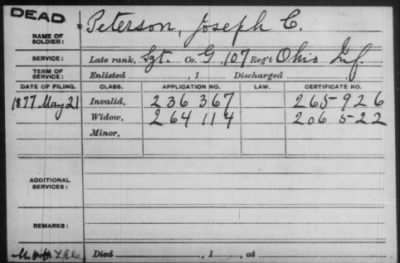 DEAD
NAME OF SOLDIER: Peterson, Joseph C.
SERVICE: Late rank, Sgt. Co. G, 107 Reg't Ohio Inf.
TERM OF SERVICE: Enlisted , 1 Discharged , 1
DATE OF FILING. CLASS. APPLICATION NO. LAW. CERTIFICATE NO.
1877 May 21 Invalid, 236 367 265-926
Widow, 264 114 206 522
Minor,
ADDITIONAL SERVICES:
REMARKS:
Died , 1 , at